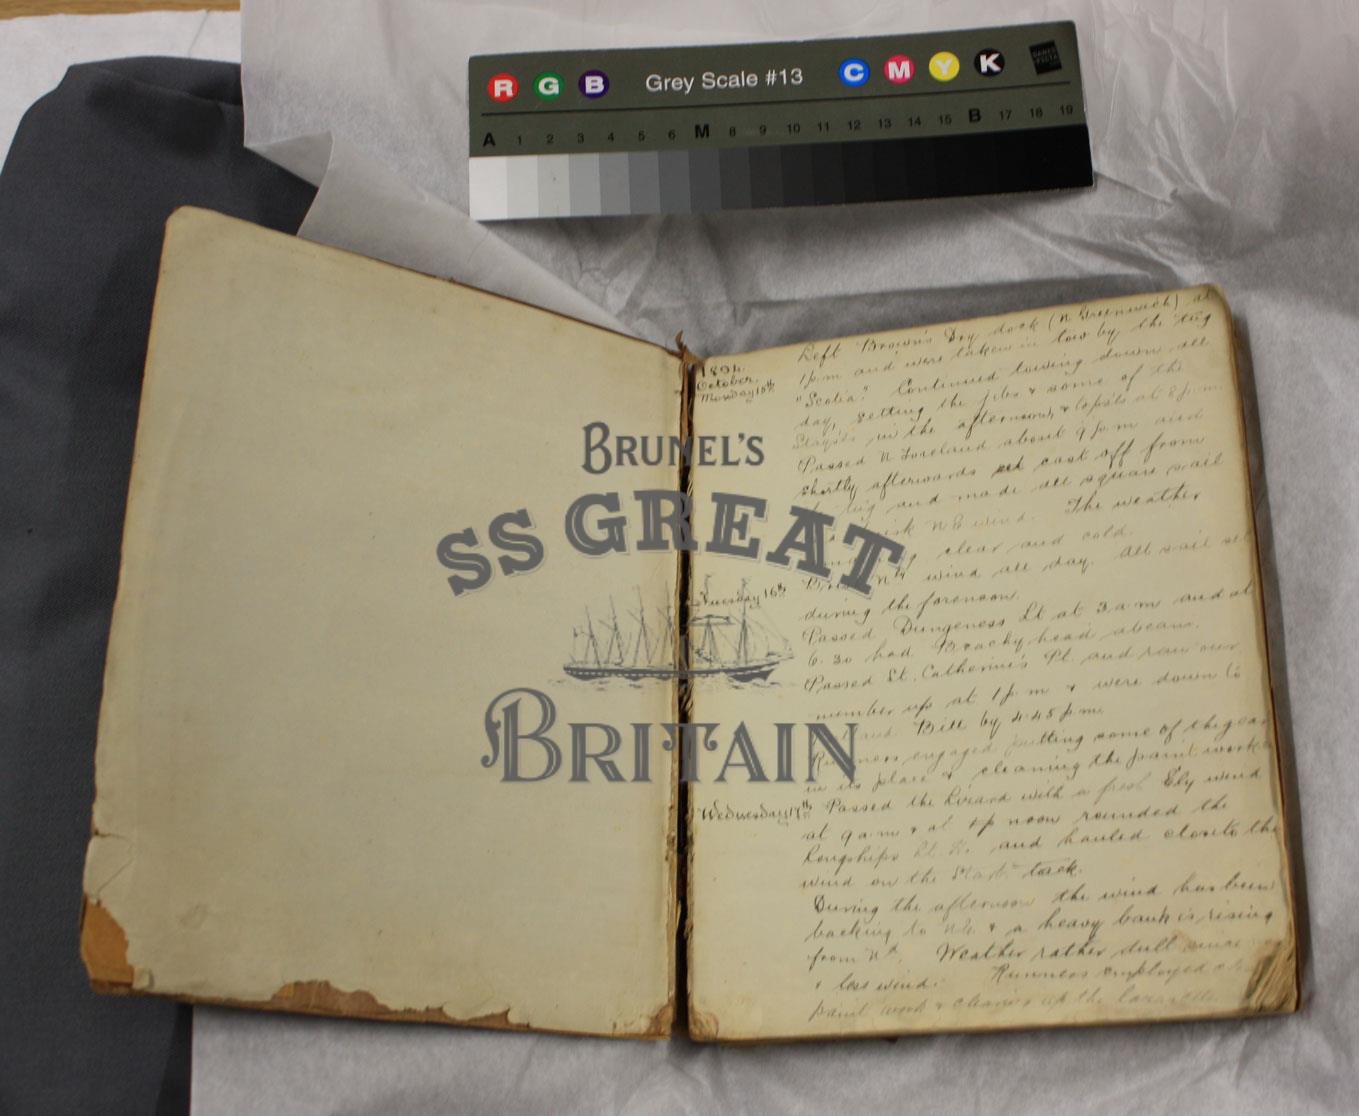 R G B Grey Scale #13 C M Y K
A 1 2 3 4 5 6 M 8 9 10 11 12 13 14 15 B 17 18 19
BRUNEL'S
SS GREAT
BRITAIN
1894
October
Monday 15th
Left Brown's Dry dock (N Greenwich) at
1 p.m and were taken in tow by the tug
"Scotia". Continued towing down all
day, setting the jibs & some of the
Stays'ls in the afternoon, & tops'ls at 8 p.m.
Passed N Foreland about 9 p.m and
shortly afterwards cast off from
tug and made all square sail
N.E wind. The weather
clear and cold.
Tuesday 16th
wind all day. All sail set
during the forenoon.
Passed Dungeness Lt at 3 a.m and at
6.30 had Beachy head abeam.
Passed St. Catherine's Pt. and ran our
number up at 1 p.m & were down to
Bill by 4.45 p.m.
Runners engaged putting some of the gear
in its place & cleaning the paint work
Wednesday 17th
Passed the Lizard with a fresh Ely wind
at 9 a.m & at noon rounded the
Longships Lt. and hauled close to the
wind on the Starb. tack.
During the afternoon the wind has been
backing to N.E. & a heavy bank is rising
from Nd. Weather rather dull
& less wind. Runners employed
paint work & cleaning up the lazarette.